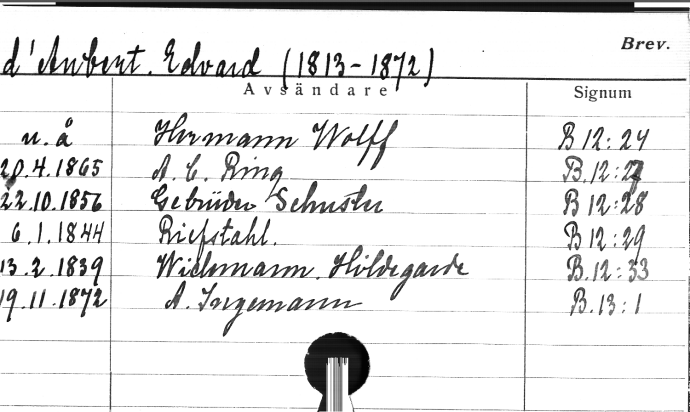 Brev.
d'Aubert. Edvard (1813-1872)
Avsändare Signum
u. å Hermann Wolff B 12:24
20.4.1865 A. C. Ring B.12:27
22.10.1856 Gebrüder Schuster B 12:28
6.1.1844 Riefstahl. B 12:29
13.2.1839 Wichmann. Hildegarde B.12:33
19.11.1872 A. Ingemann B.13:1